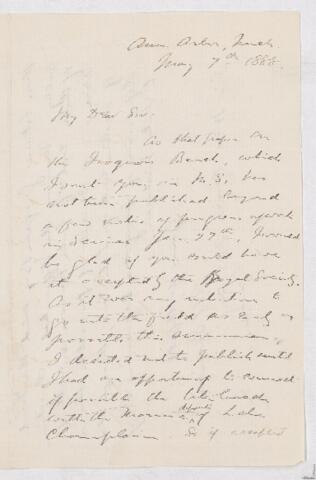 Ann Arbor, Mich.
May 7th 1888.
My Dear Sir.
As that paper on
the Iroquois Beach, which
I sent you, in M.S. has
not been published beyond
a few notes of progress of work
in Science Jan. 27th, I would
be glad if you could have
it accepted by the Royal Society.
As it was my intention to
go into the field as early as
possible this summer,
I decided not to publish until
I had an opportunity to connect
if possible the
with the Marine deposits of Lake
Champlain. So if accepted